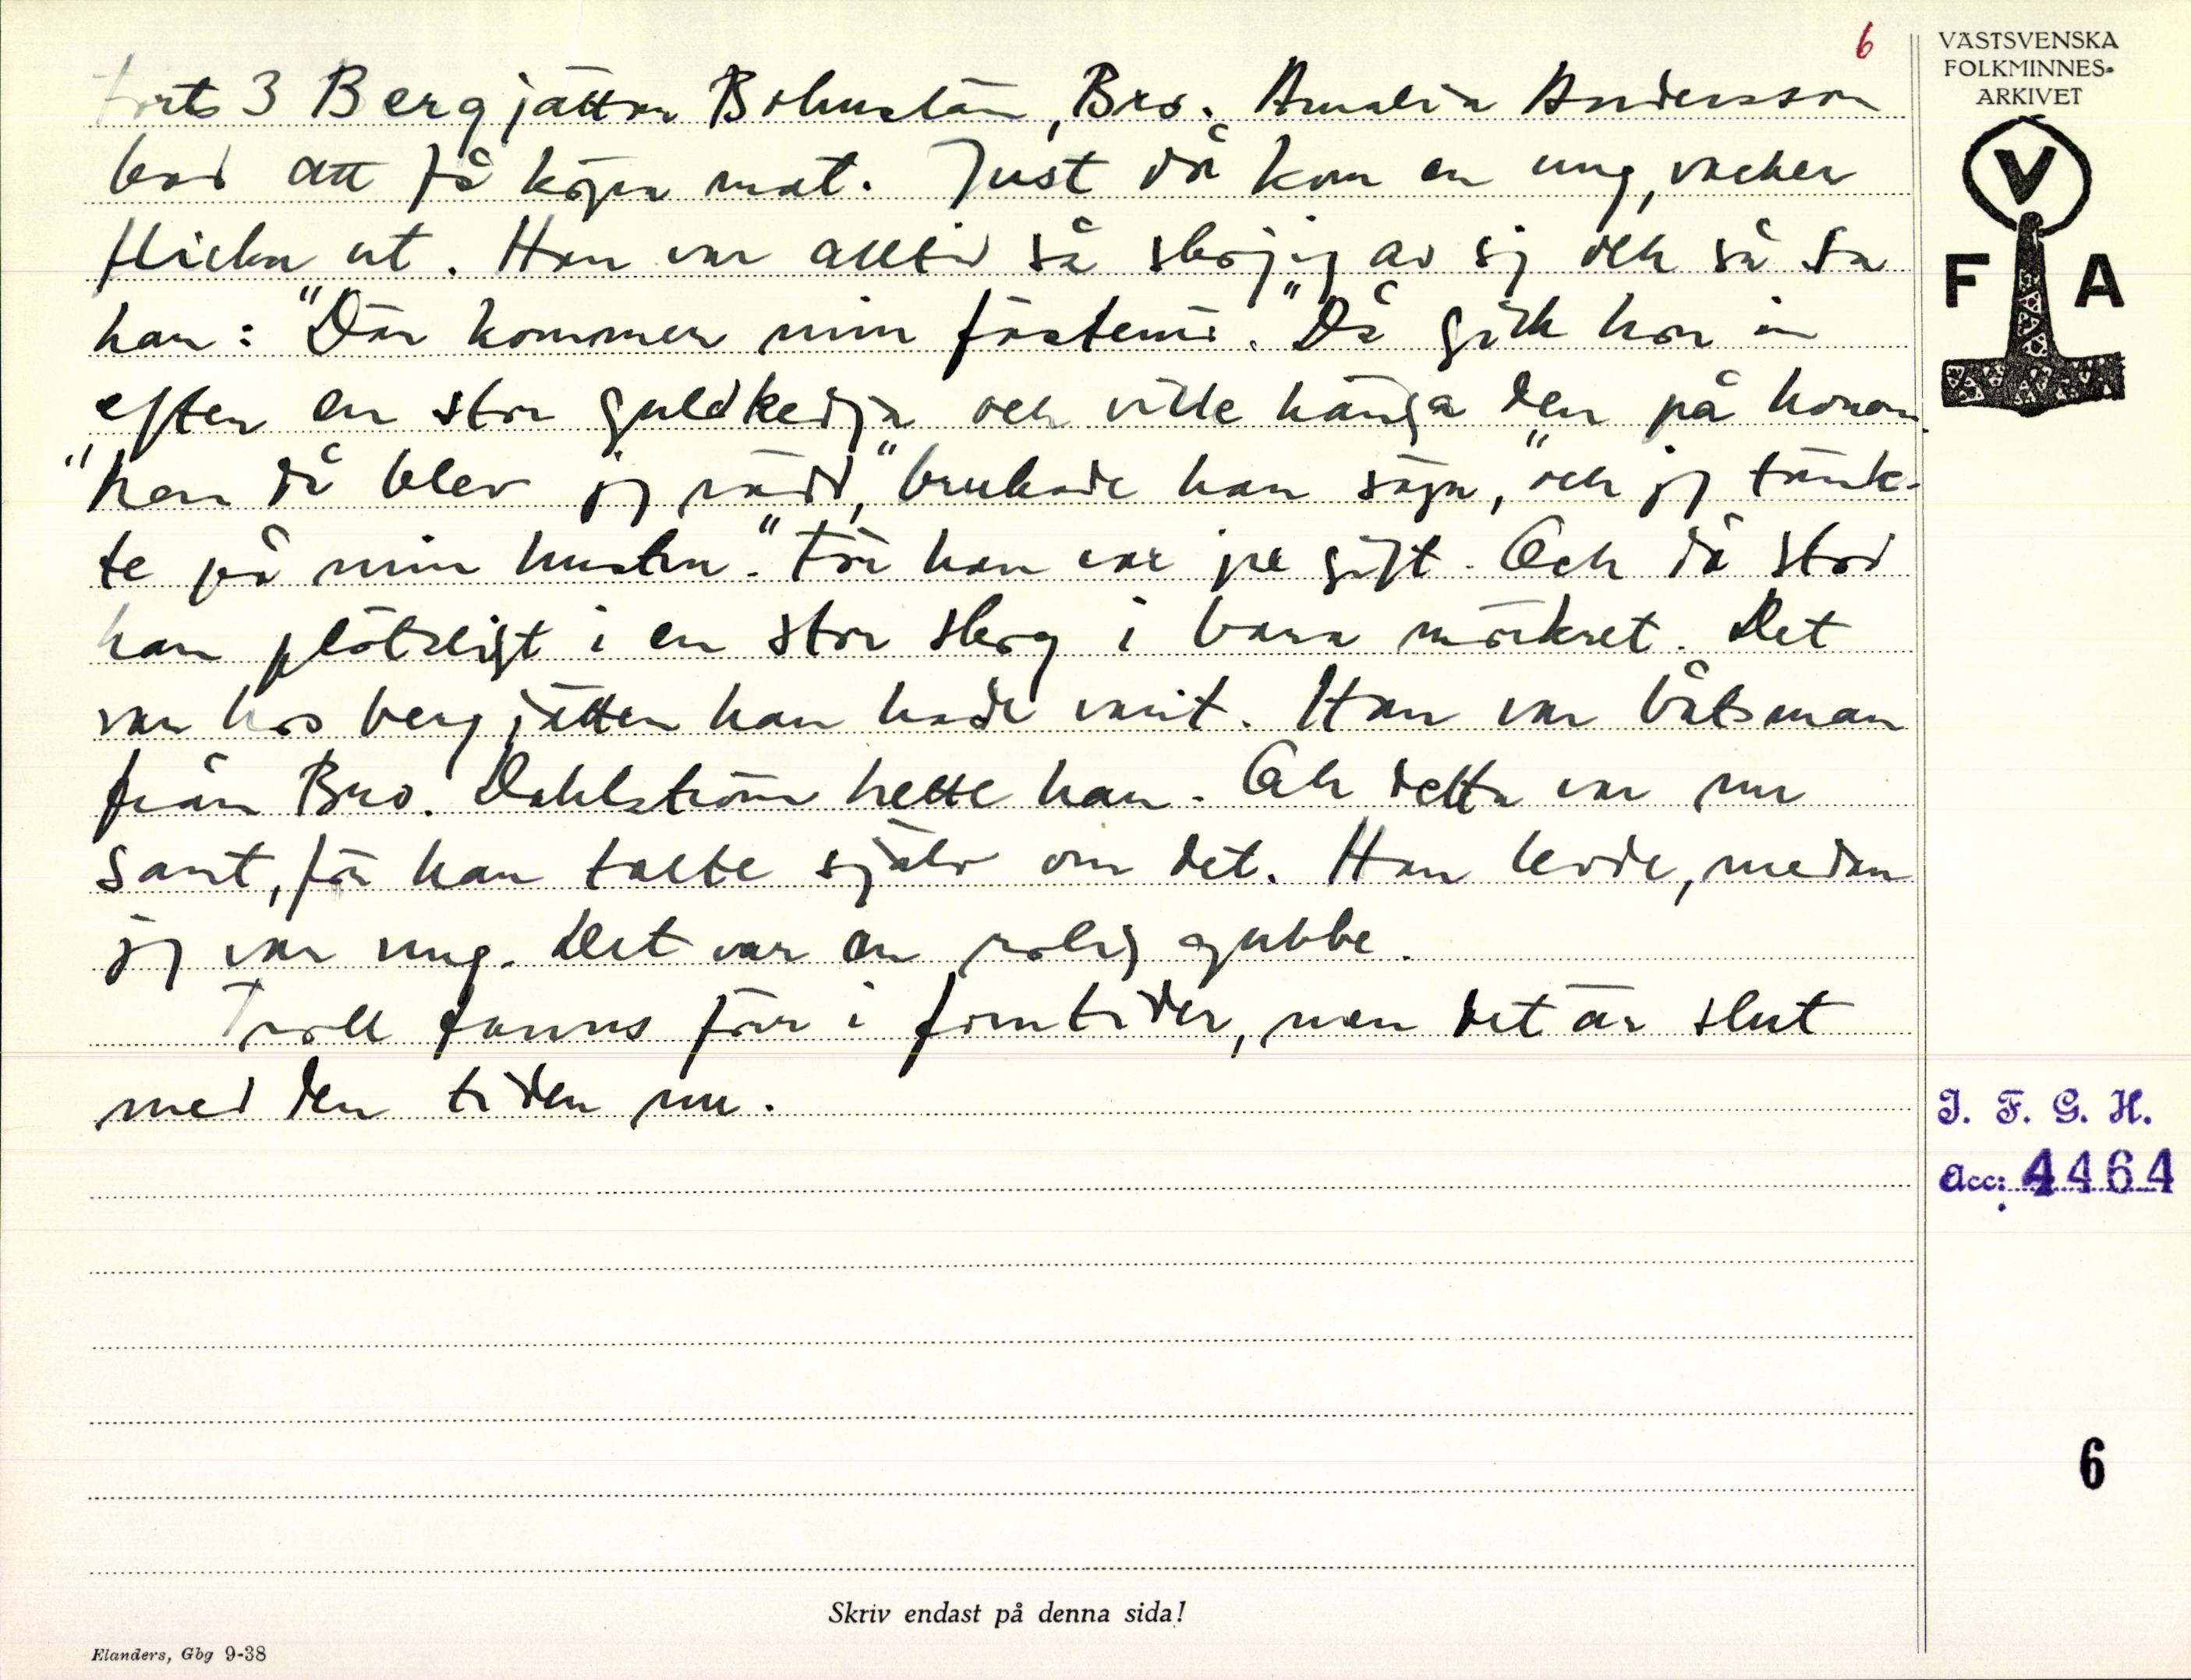 6
forts 3 Bergjätten Bohuslän, Bro. Amalia Andersson
bad att få köpa mat. Just då kom en ung, vacker
flicka ut. Han var alltid så skojig av sig och så sa
han: "Där kommer min fästemö." Då gick hon in
efter en stor guldkedja och ville hänga den på honom.
"Men då blev jag rädd," brukade han säga, "och jag tänk-
te på min hustru." För han var ju gift. Och då stod
han plötsligt i en stor skog i bara mörkret. Det
var hos bergjätten han hade varit. Han var båtsman
från Bro. Dahlström hette han. Och detta var nu
sant, för han talte själv om det. Han levde, medan
jag var ung. Det var en rolig gubbe.
Troll fanns förr i forntiden, men det är slut
med den tiden nu.
VÄSTSVENSKA
FOLKMINNES-
ARKIVET
V
F A
I. F. G. H.
Acc: 4464
6
Skriv endast på denna sida!
Elanders, Gbg 9-38